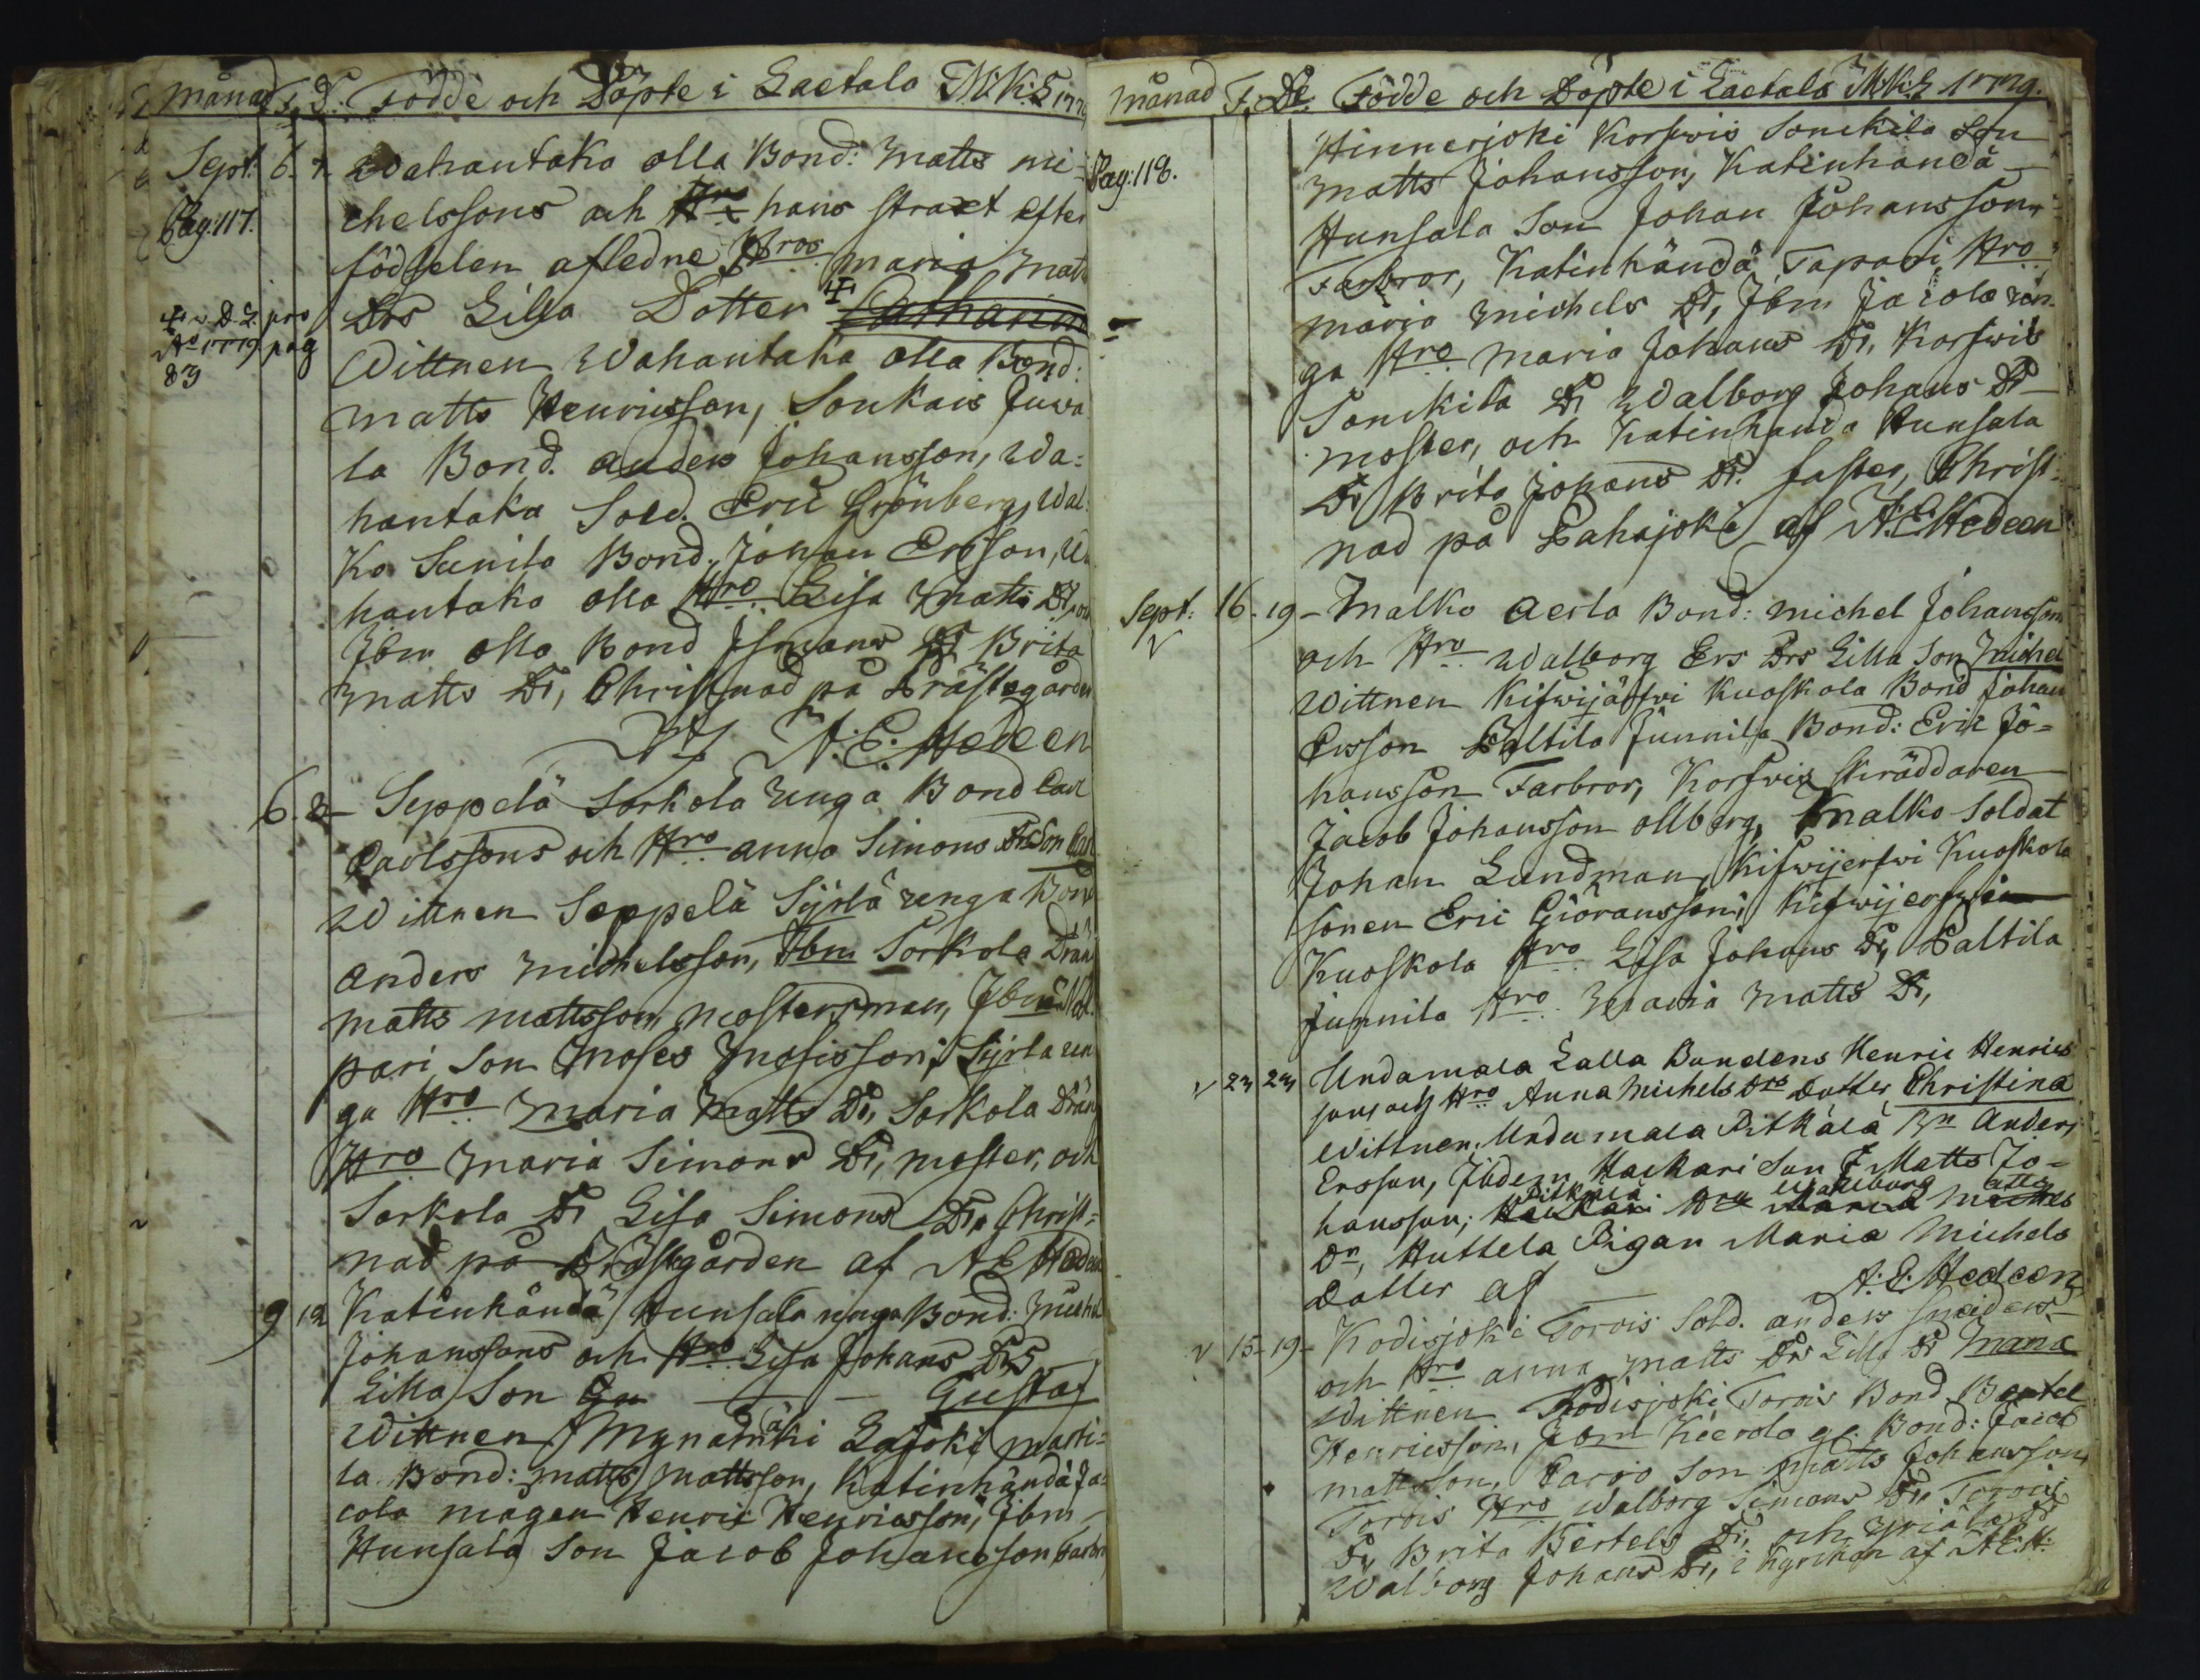 Månad F. D. Födde och Döpte i Laetala M.K:S 177
Sept. 6. 7. Wahantaka olla Bond: Matts Mi-
Pag: 117.
chelssons och Hro hans straxt efter
födslen afledne Hros Maria Matts
Drs Lilla Dotter Catharina
pro
Ao 1779 pag
83
Wittnen Wahantaka olla Bond:
Matts Henricsson, Soukais Juwa
la Bond. Anders Johansson, Wa=
hantaka Sold. Eric Grönberg, Wal
ko Sunila Bond. Johan Ersson, Wa
hantaka olla Hro Lisa Matts Dr,
Ibm olla Bond Ismans Dr Brita
Matts Dr, Christnad på Prästegården
af A. E. Hedeen
6. 8 - Seppelä Sorkola unga Bond Carl
Carlssons och Hro Anna Simons Drs Son Carl
Wittnen Seppelä Sijrlä unga Bond
Anders Michelsson, Ibm Sorkola Dräng
Matts Mattsson, Mosterman, Ibm
pari Son Moses Mosisson; Sijrla un
ga Hro Maria Matts Dr, Sorkola Dräng
Hro Maria Simons Dr, Moster, och
Sorkola Dr Lisa Simons Dr. Christ=
nad på Prästgården af A E Hedeen
9 12 Katinhändä Hunsala unga Bond: Michel
Johanssons och Hro Lisa Johans Drs
Lilla Son Gu — — Gustaf
Wittnen Mynämäki Lajoki Marti=
la Bond: Matts Mattsson, Katinhändä Ja=
cola mågen Henric Henricsson, Ibm
Hunsala Son Jacob Johansson farbror
Månad F. De Födde och Döpte i Laetala M:K:S 1779.
Pag: 118.
Hinnerjoki Korfwis Sonckila Son
Matts Johansson, Katinhändä
Hunsala Son Johan Johansson
Farbror, Katinhändä Tapani Hro
Maria Michels Dr, Ibm Jacola un-
ga Hro Maria Johans Dr, Korfwis
Sonckila Dr Walborg Johans Dr
Moster, och Katinhända Hunsala
Dr Brita Johans Dr. faster, Christ=
nad på Pahajoki af A. E. Hedeen
Sept: 16 - 19 - Malko Aerla Bond: Michel Johansson
och Hro Walborg Ers Drs Lilla Son Michel
Wittnen Kifwijärfwi Kuoskola Bond Johan
Ersson Paltila Junnila Bond: Erik Jo=
hansson Farbror, Korfwis Skräddaren
Jacob Johansson Ollberg, Malko Soldat
Johan Lundman, Kifwijerfwi Kuoskola
Sonen Eric Giöransson, Kifwijerfwi
Kuoskola Hro Lisa Johans Dr, Paltila
Junnila Hro Maria Matts Dr,
v 23 23 Undamala Lalla Bondens Henric Henrics
sons och Hro Anna Michels Drs dotter Christina
Wittnen, Undamala Pitkälä Bn Anders
Ersson, Ibdem Haukari Son J Matts Jo=
Pitkälä Wallborg atts
hansson; Haukari Hro Maria Michels
Dr, Huttela Pigan Maria Michels
Dotter af A: E: Hedeen
v 15 - 19 - Kodisjoki Torois Sold. Anders Sneiders
och Hro Anna Matts Drs Lilla Dr Maria
Wittnen Kodisjoki Torois Bond Bertel
Henricsson, Ibm Kierola g. Bond: Jacob
Mattsson, Parvo Son Matts Johansson
Torois Hro Walborg Simons Dr. Torois
Dr Brita Bertels Dr, och Yriälä Dr
Walborg Johans Dr, i kyrckan af A: E: H: